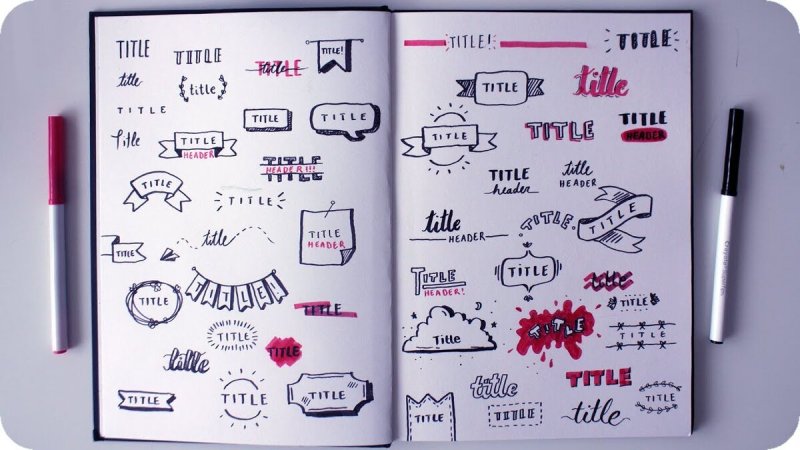 TITLE
TITLE
TITLE
title
TITLE!
title
title
TITLE
TITLE
TITLE
Title
TITLE
HEADER
TITLE
HEADER!!!
TITLE
TITLE
TITLE
HEADER
title
TITLE
TITLE
TITLE!
TITLE
TITLE
TITLE
title
TITLE
TITLE
TITLE
TITLE!
TITLE
TITLE
title
TITLE
TITLE
TITLE
HEADER
TITLE
header
title
HEADER
title
HEADER
TITLE
TITLE
TITLE
HEADER!
TITLE
title
TITLE
Title
TITLE
TITLE
title
TITLE
TITLE
TITLE
TITLE
title